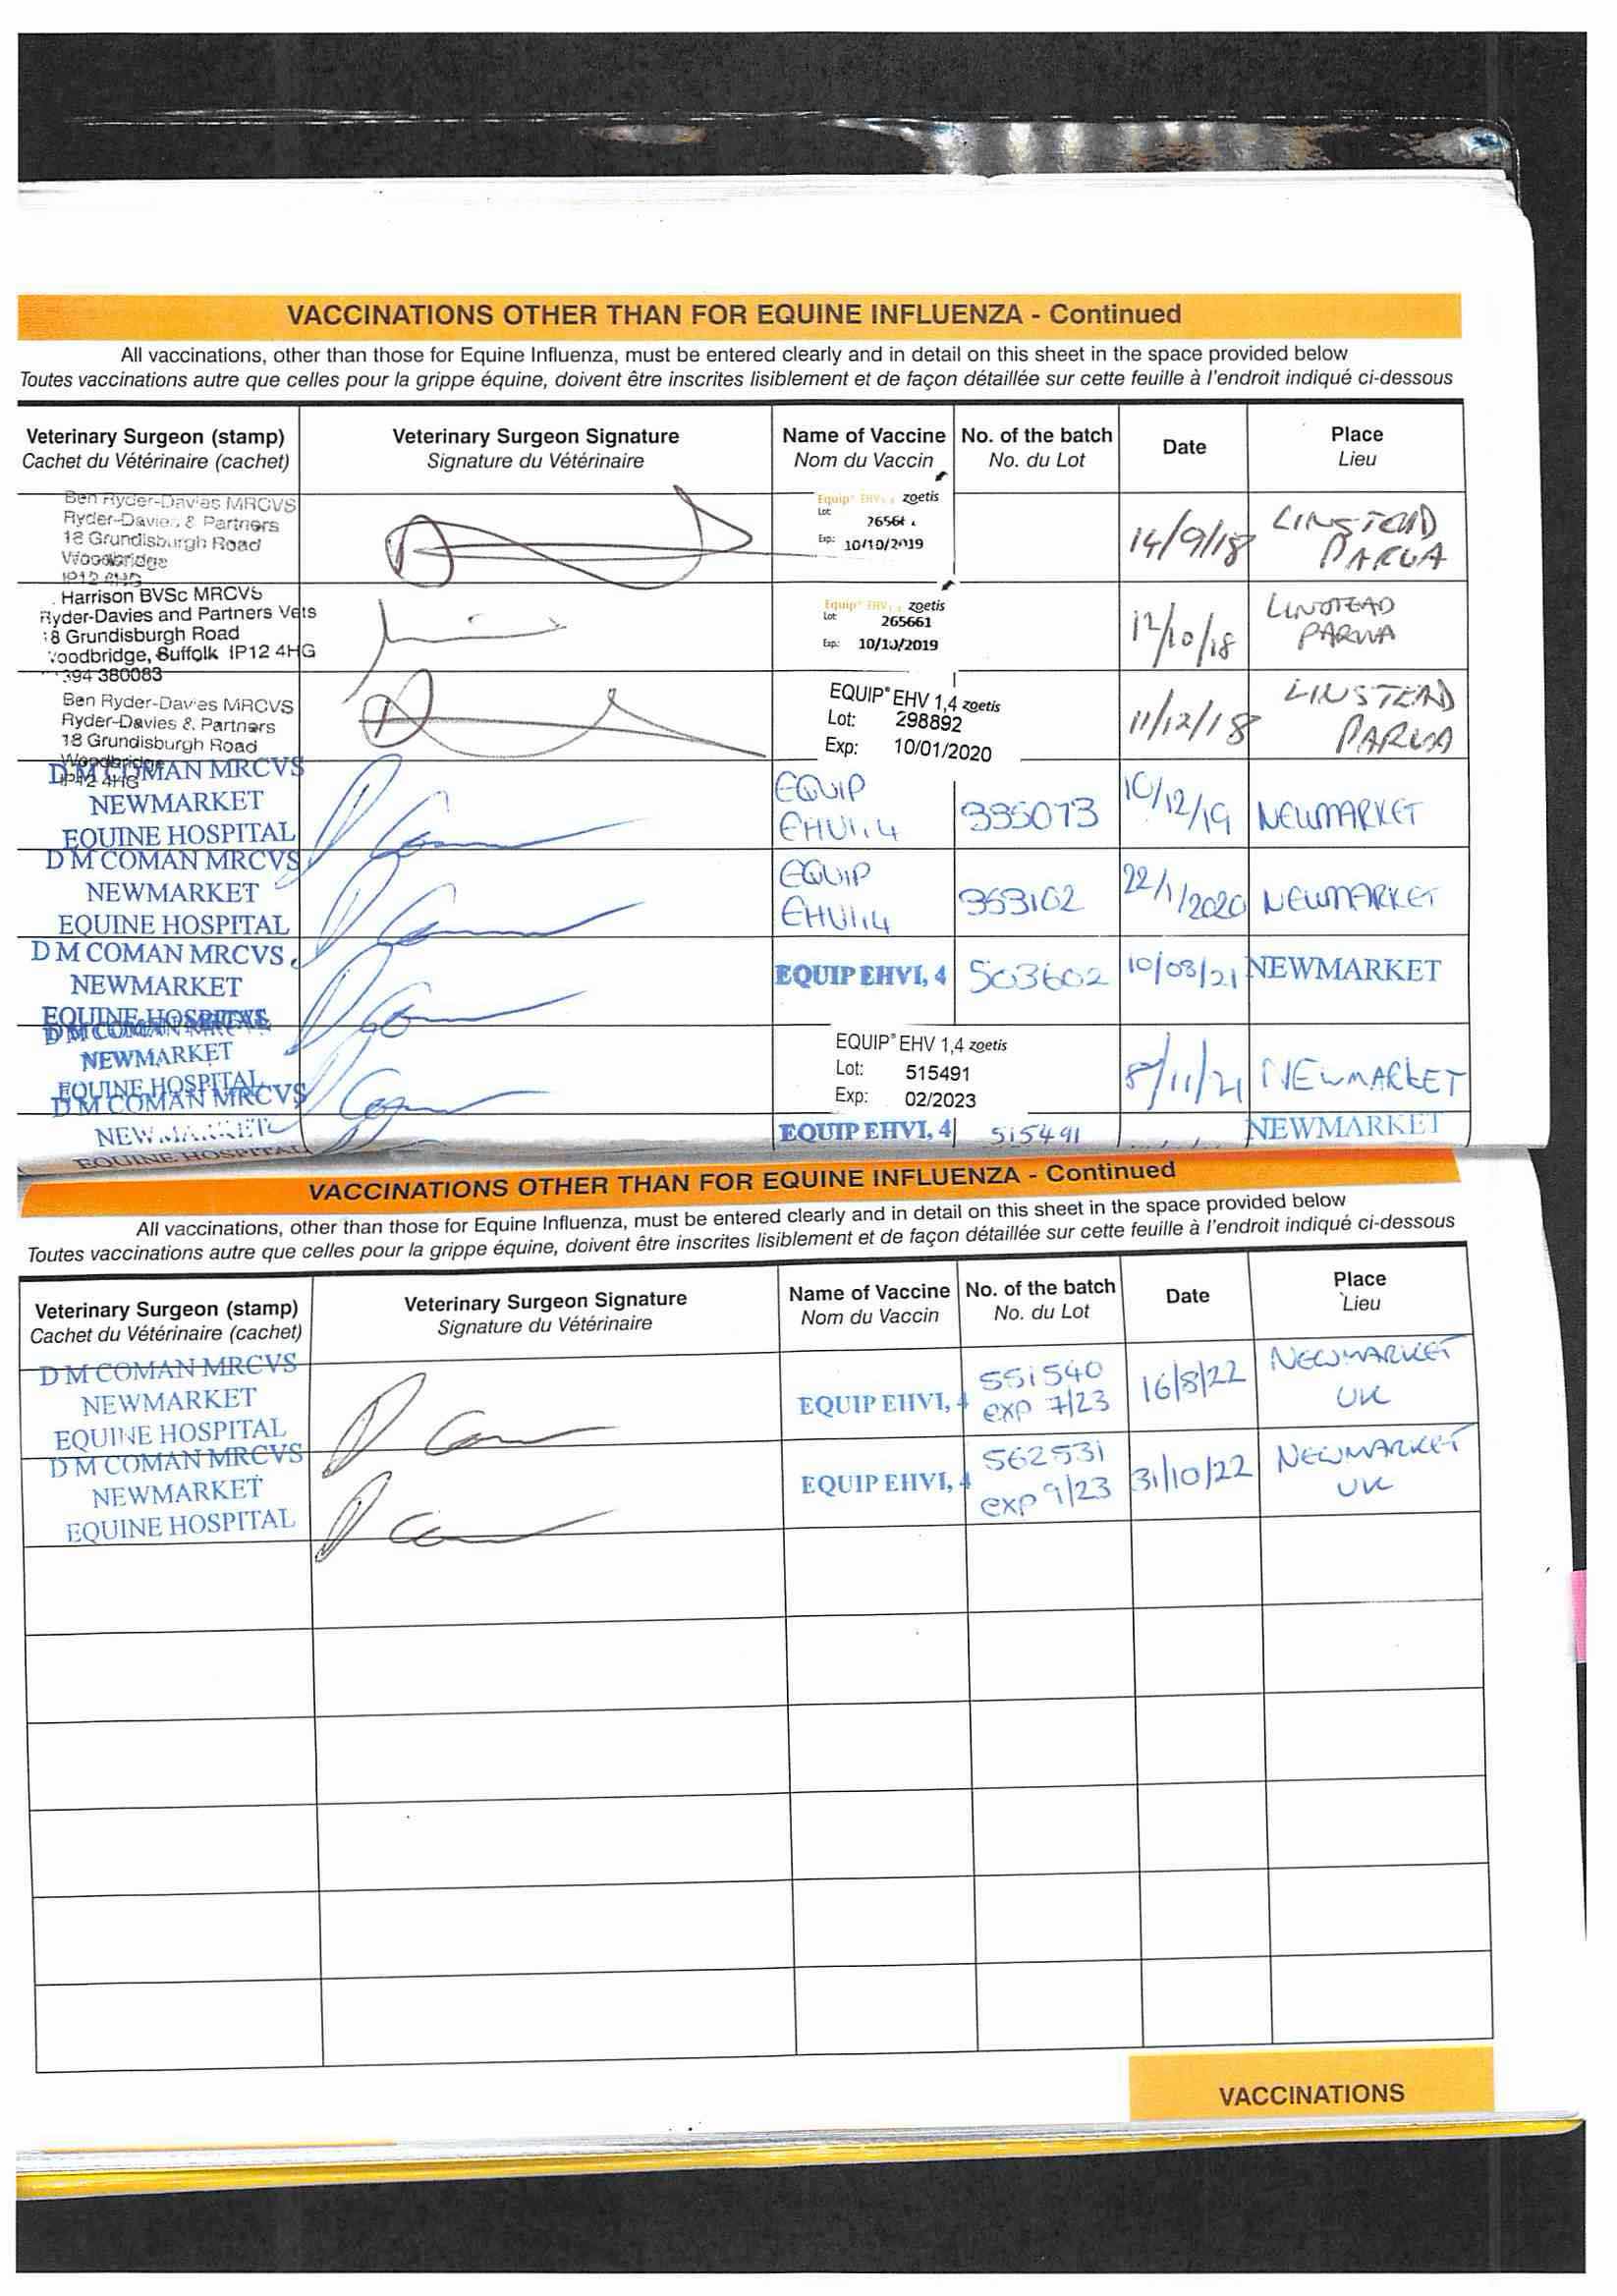 VACCINATIONS OTHER THAN FOR EQUINE INFLUENZA - Continued
All vaccinations, other than those for Equine Influenza, must be entered clearly and in detail on this sheet in the space provided below
Toutes vaccinations autre que celles pour la grippe équine, doivent être inscrites lisiblement et de façon détaillée sur cette feuille à l'endroit indiqué ci-dessous
Veterinary Surgeon (stamp) Veterinary Surgeon Signature Name of Vaccine No. of the batch Date Place
Cachet du Vétérinaire (cachet) Signature du Vétérinaire Nom du Vaccin No. du Lot Lieu
Ben Ryder-Davies MRCVS
Ryder-Davies & Partners
18 Grundisburgh Road
Woodbridge
IP12 4HG
Equip® EHV1,4 zoetis
Lot:
Exp: 10/10/2019
14/9/18
LINSTEAD
PARVA
Harrison BVSc MRCVS
Ryder-Davies and Partners Vets
18 Grundisburgh Road
Woodbridge, Suffolk IP12 4HG
394 380083
Equip® EHV1,4 zoetis
Lot: 265661
Exp: 10/10/2019
12/10/18
LINSTEAD
PARVA
Ben Ryder-Davies MRCVS
Ryder-Davies & Partners
18 Grundisburgh Road
Woodbridge
IP12 4HG
EQUIP® EHV 1,4 zoetis
Lot: 298892
Exp: 10/01/2020
11/12/18
LINSTEAD
PARVA
D M COMAN MRCVS
NEWMARKET
EQUINE HOSPITAL
EQUIP
EHV1,4
335073
10/12/19
NEWMARKET
D M COMAN MRCVS
NEWMARKET
EQUINE HOSPITAL
EQUIP
EHV1,4
353102
22/1/2020
NEWMARKET
D M COMAN MRCVS
NEWMARKET
EQUINE HOSPITAL
EQUIP EHV1, 4
503602
10/08/21
NEWMARKET
D M COMAN MRCVS
NEWMARKET
EQUINE HOSPITAL
EQUIP® EHV 1,4 zoetis
Lot: 515491
Exp: 02/2023
8/11/21
NEWMARKET
D M COMAN MRCVS
NEWMARKET
EQUINE HOSPITAL
EQUIP EHV1, 4
515491
NEWMARKET
VACCINATIONS OTHER THAN FOR EQUINE INFLUENZA - Continued
All vaccinations, other than those for Equine Influenza, must be entered clearly and in detail on this sheet in the space provided below
Toutes vaccinations autre que celles pour la grippe équine, doivent être inscrites lisiblement et de façon détaillée sur cette feuille à l'endroit indiqué ci-dessous
Veterinary Surgeon (stamp) Veterinary Surgeon Signature Name of Vaccine No. of the batch Date Place
Cachet du Vétérinaire (cachet) Signature du Vétérinaire Nom du Vaccin No. du Lot Lieu
D M COMAN MRCVS
NEWMARKET
EQUINE HOSPITAL
EQUIP EHV1, 4
551540
exp 7/23
16/8/22
NEWMARKET
UK
D M COMAN MRCVS
NEWMARKET
EQUINE HOSPITAL
EQUIP EHV1, 4
562531
exp 9/23
31/10/22
NEWMARKET
UK
VACCINATIONS